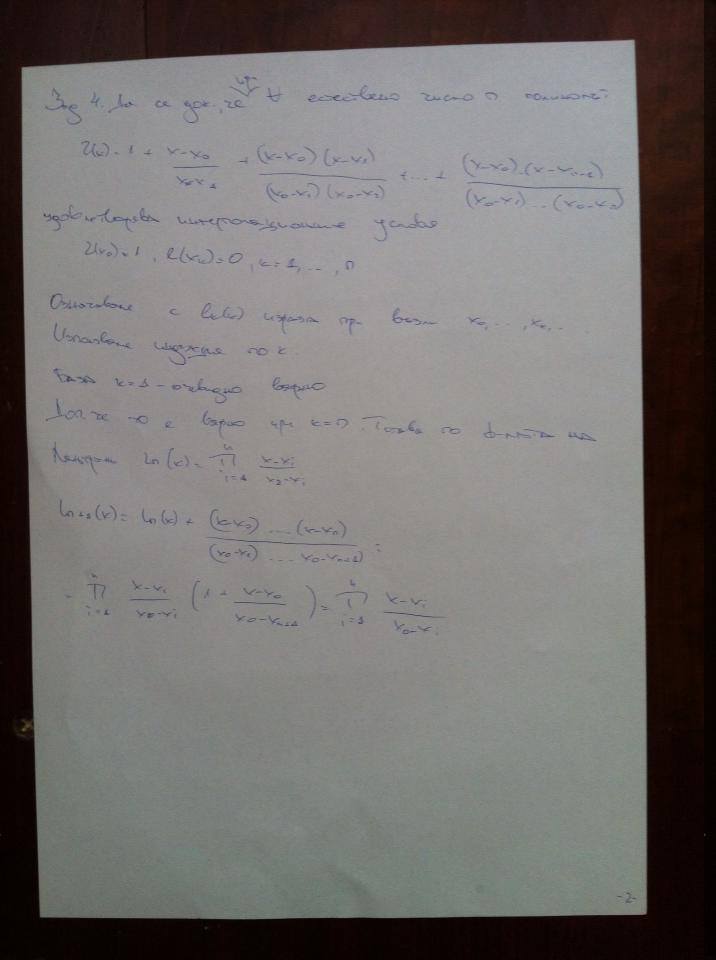 Зад 4. Да се док., че при ∀ естествено число n полиномът
l(x) = 1 + (x-x0)/(x0-x1) + (x-x0)(x-x1)/((x0-x1)(x0-x2)) + ... + (x-x0)...(x-xn-1)/((x0-x1)...(x0-xn))
удовлетворява интерполационните условия
l(x0)=1, l(xk)=0, k=1,...,n
Означаваме с lk(x) израза при възли x0,...,xk
Използваме индукция по k.
База k=1 - очевидно вярно
Доп. че е вярно при k=n. Тогава по ф-лата на
ln(x) = n ∏ i=1 (x-xi)/(x0-xi)
ln+1(x) = ln(x) + (x-x0)....(x-xn)/((x0-x1)....x0-xn+1) =
= n ∏ i=1 (x-xi)/(x0-xi) (1 + (x-x0)/(x0-xn+1)) = ∏ i=1 (x-xi)/(x0-xi)
-2-